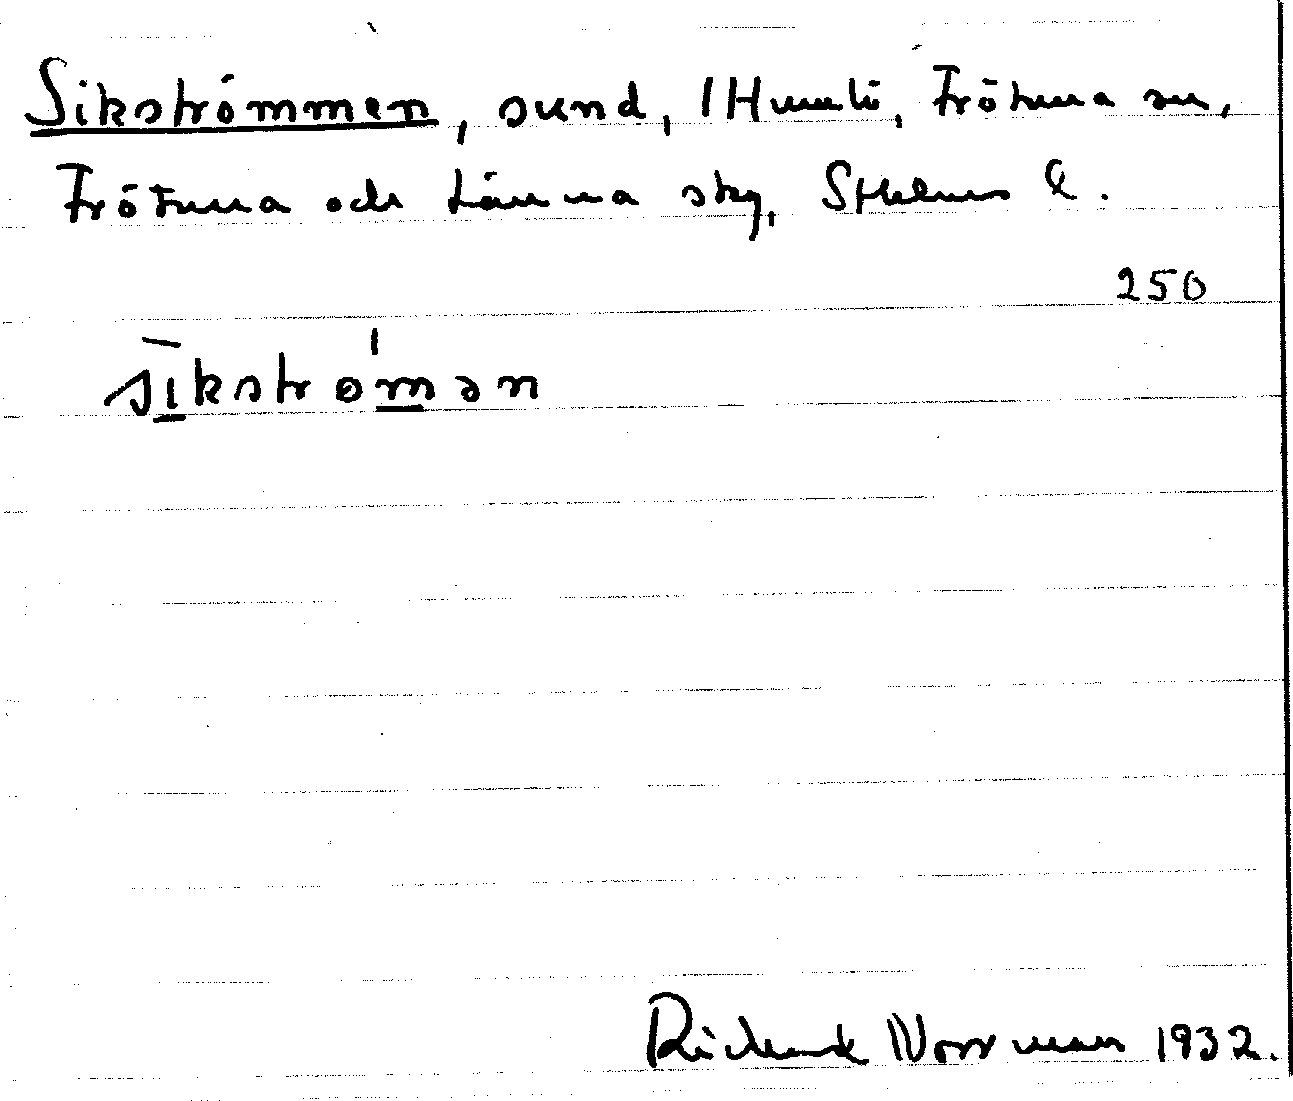 Sikströmmen, sund, 1 Humlö, Frötuna sn,
Frötuna och Länna sky, Sthlms l.
250
sikstrømən
Rickard Norrman 1932.